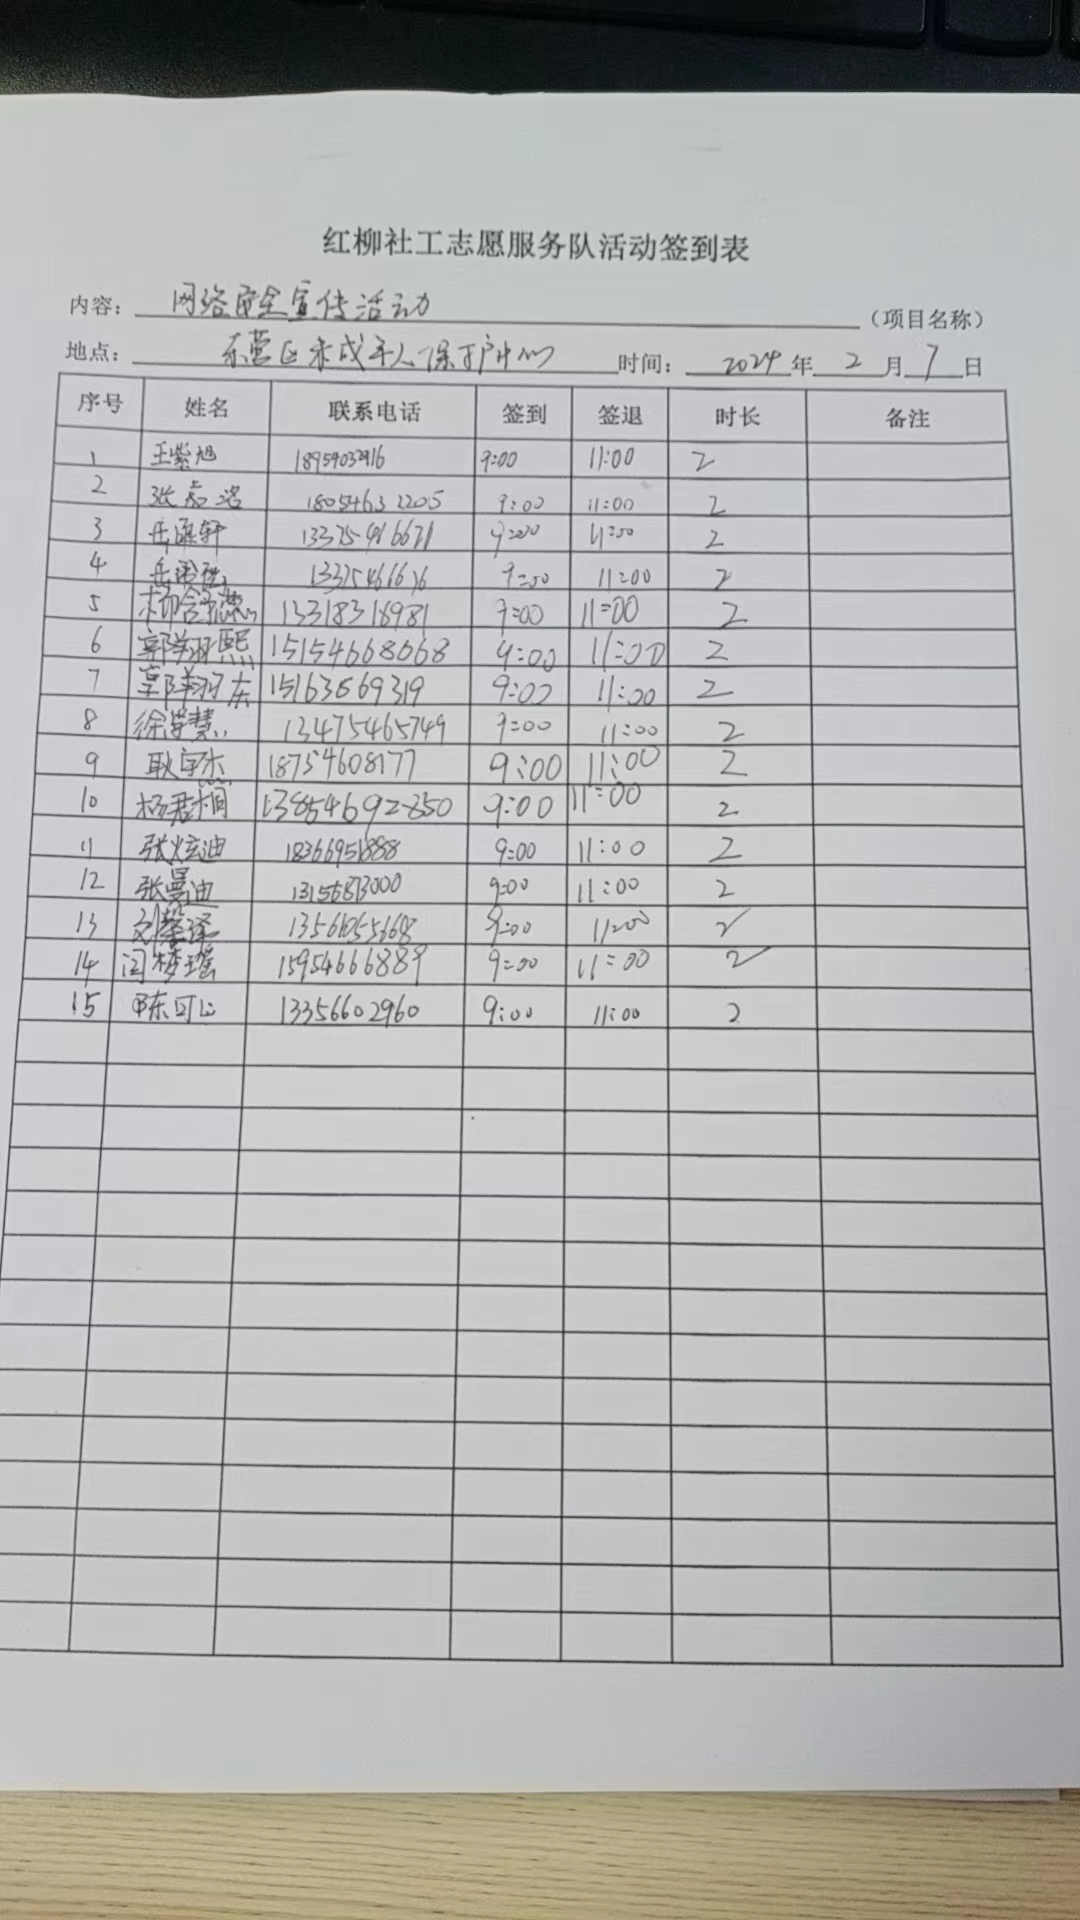 红柳社工志愿服务队活动签到表
内容：网络安全宣传活动（项目名称）
地点：东营区未成年人保护中心 时间：2024年2月7日
序号 姓名 联系电话 签到 签退 时长 备注
1 王紫旭 18959032916 9:00 11:00 2
2 张嘉洺 18054632205 9:00 11:00 2
3 岳 轩 13375466671 9:00 11:00 2
4 岳 9:00 11:00 2
5 13318318981 9:00 11:00 2
6 郭翔熙 15154668068 9:00 11:00 2
7 15163569319 9:00 11:00 2
8 徐 慧 13475465749 9:00 11:00 2
9 耿 18754608177 9:00 11:00 2
10 杨君桐 13854692850 9:00 11:00 2
11 张炫迪 18366951888 9:00 11:00 2
12 张曼迪 13156873000 9:00 11:00 2
13 刘馨泽 13561055668 9:00 11:00 2
14 闫梦瑶 15954666889 9:00 11:00 2
15 陈可心 13356602960 9:00 11:00 2